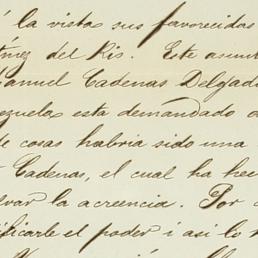 á la vista sus favorecidas
del Rio. Este asun
Manuel Cadenas Delgado
esta demandado
de cosas habria sido una
Cadenas, el cual ha hec
var la acreencia. Por
ificarle el poder i asi lo